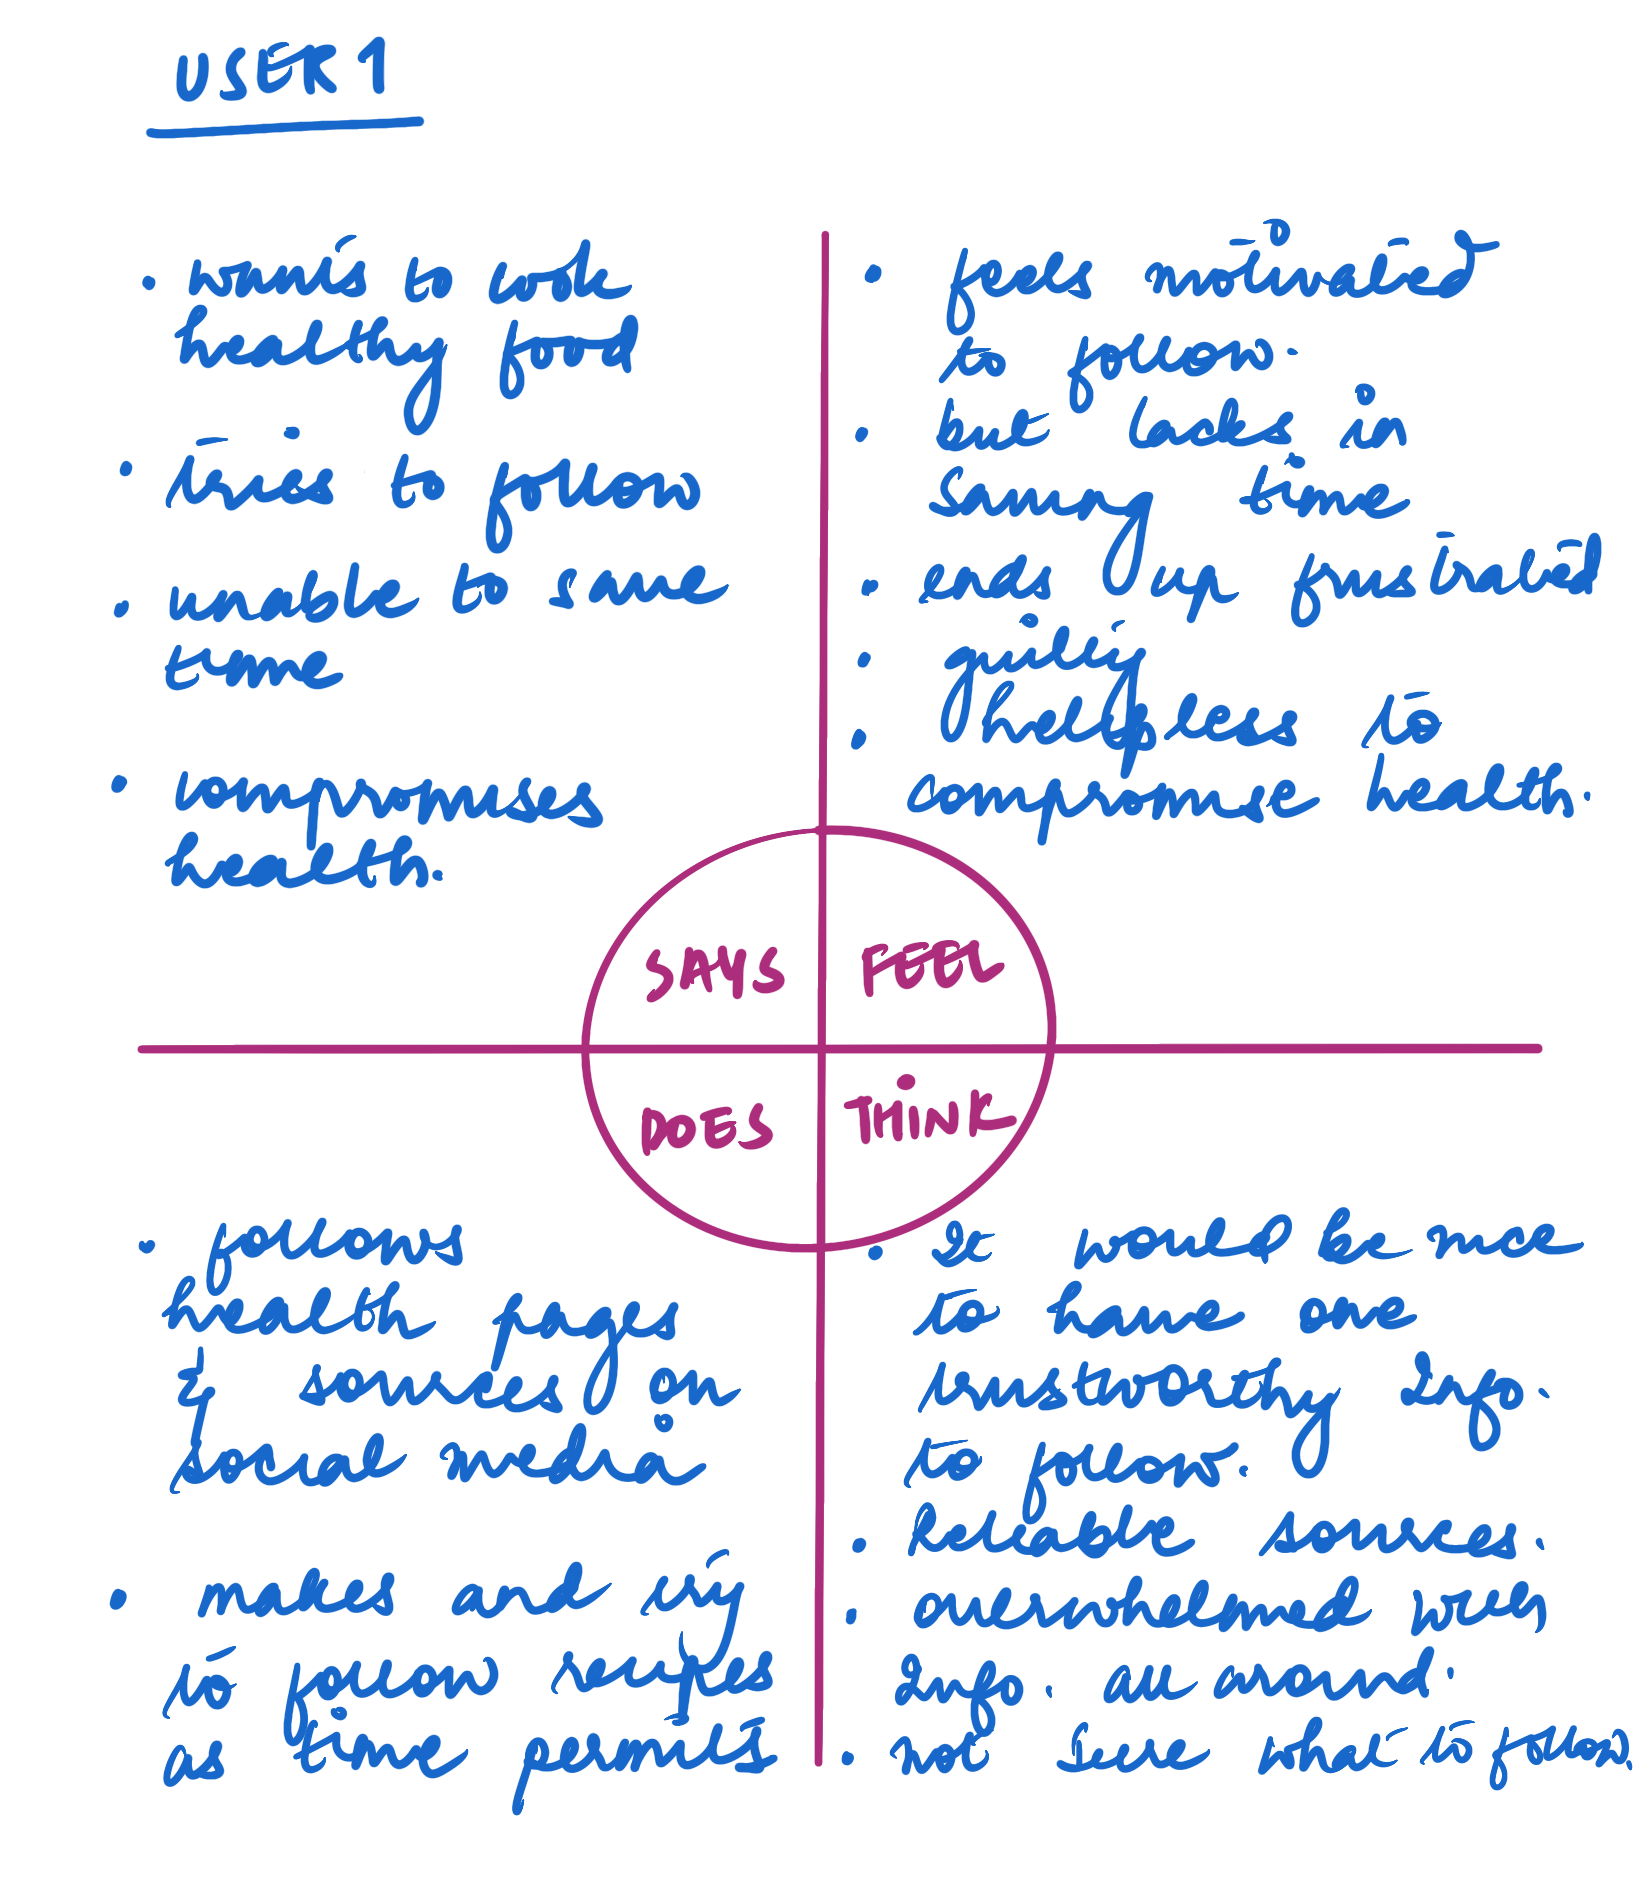 USER 1
• wants to cook
healthy food
• tries to follow
• unable to save
time
• compromises
health.
• feels motivated
to follow.
• but lacks in
saving time
• ends up frustrated
• guilty
• helpless to
compromise health.
SAYS
FEEL
DOES
THINK
• follows
health pages
& sources on
social media
• makes and try
to follow recipes
as time permits
• It would be nice
to have one
trustworthy Info.
to follow.
• Reliable sources.
• overwhelmed with
Info. all around.
• not sure what to follow.